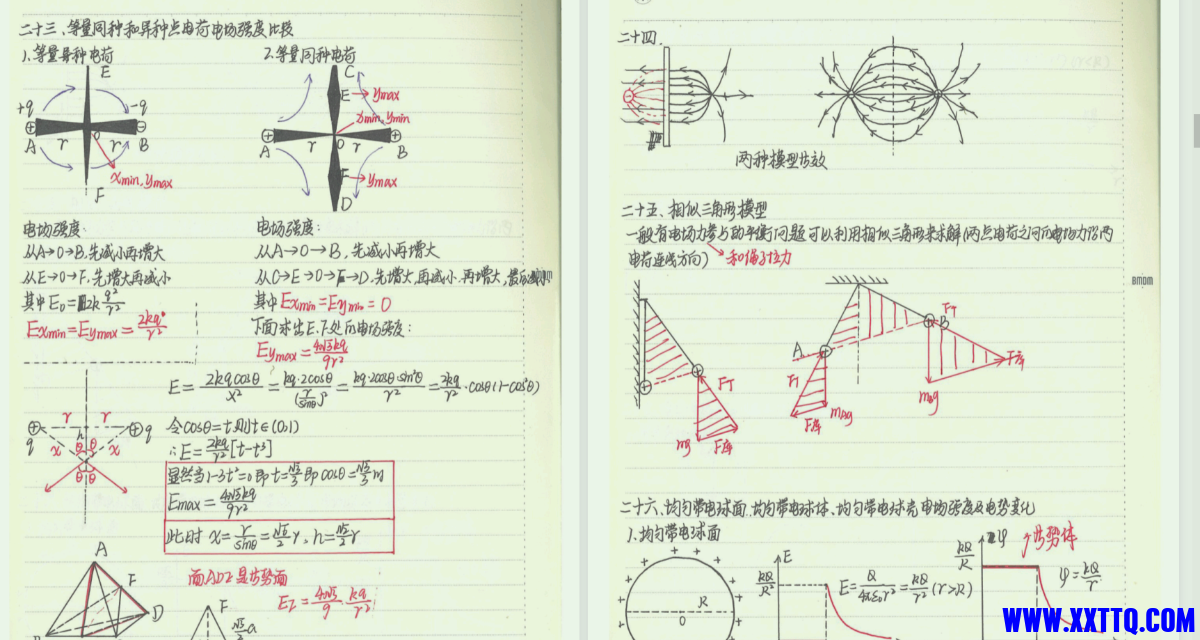 二十三、等量同种和异种点电荷电场强度比较
1.等量异种电荷
2.等量同种电荷
E
+q
-q
A
r
O
r
B
xmin,ymax
F
C
E
ymax
xmin,ymin
A
r
O
r
B
F
ymax
D
电场强度:
从A→O→B,先减小再增大
从E→O→F,先增大再减小
其中E₀=2k q²/r²
Exmin=Eymax=2kq/r²
电场强度:
从A→O→B,先减小再增大
从C→E→O→F→D,先增大,再减小,再增大,最后减小
其中Exmin=Eymin=0
下面求出E、F处的电场强度:
Eymax=4√3kq/9r²
E=2kqcosθ/x²=kq·2cosθ/(r/sinθ)²=kq·2cosθ·sin²θ/r²=2kq/r²·cosθ(1-cos²θ)
r
r
q
q
x
h
x
θ
θ
θ
θ
令cosθ=t则t∈(0,1)
∴E=2kq/r²[t-t³]
显然当1-3t²=0即t=√3/3即cosθ=√3/3时
Emax=4√3kq/9r²
此时x=r/sinθ=√6/2 r,h=√2/2 r
A
F
D
B
面ADZ是等势面
EZ=4√3/9·kq/r²
F
二十四、
两种模型等效
二十五、相似三角形模型
一般有电场力参与的平衡问题可以利用相似三角形来求解(两点电荷之间的电场力沿两
电荷连线方向)
和绳子拉力
FT
mg
F库
A
FT
F库
mAg
B
FT
F库
mBg
BMDM
二十六、均匀带电球面、均匀带电球体、均匀带电球壳电场强度及电势变化
1.均匀带电球面
R
O
E
kQ/R²
E=Q/4πε₀r²=kQ/r²(r>R)
φ
kQ/R
等势体
φ=kQ/r
WWW.XXTTQ.COM